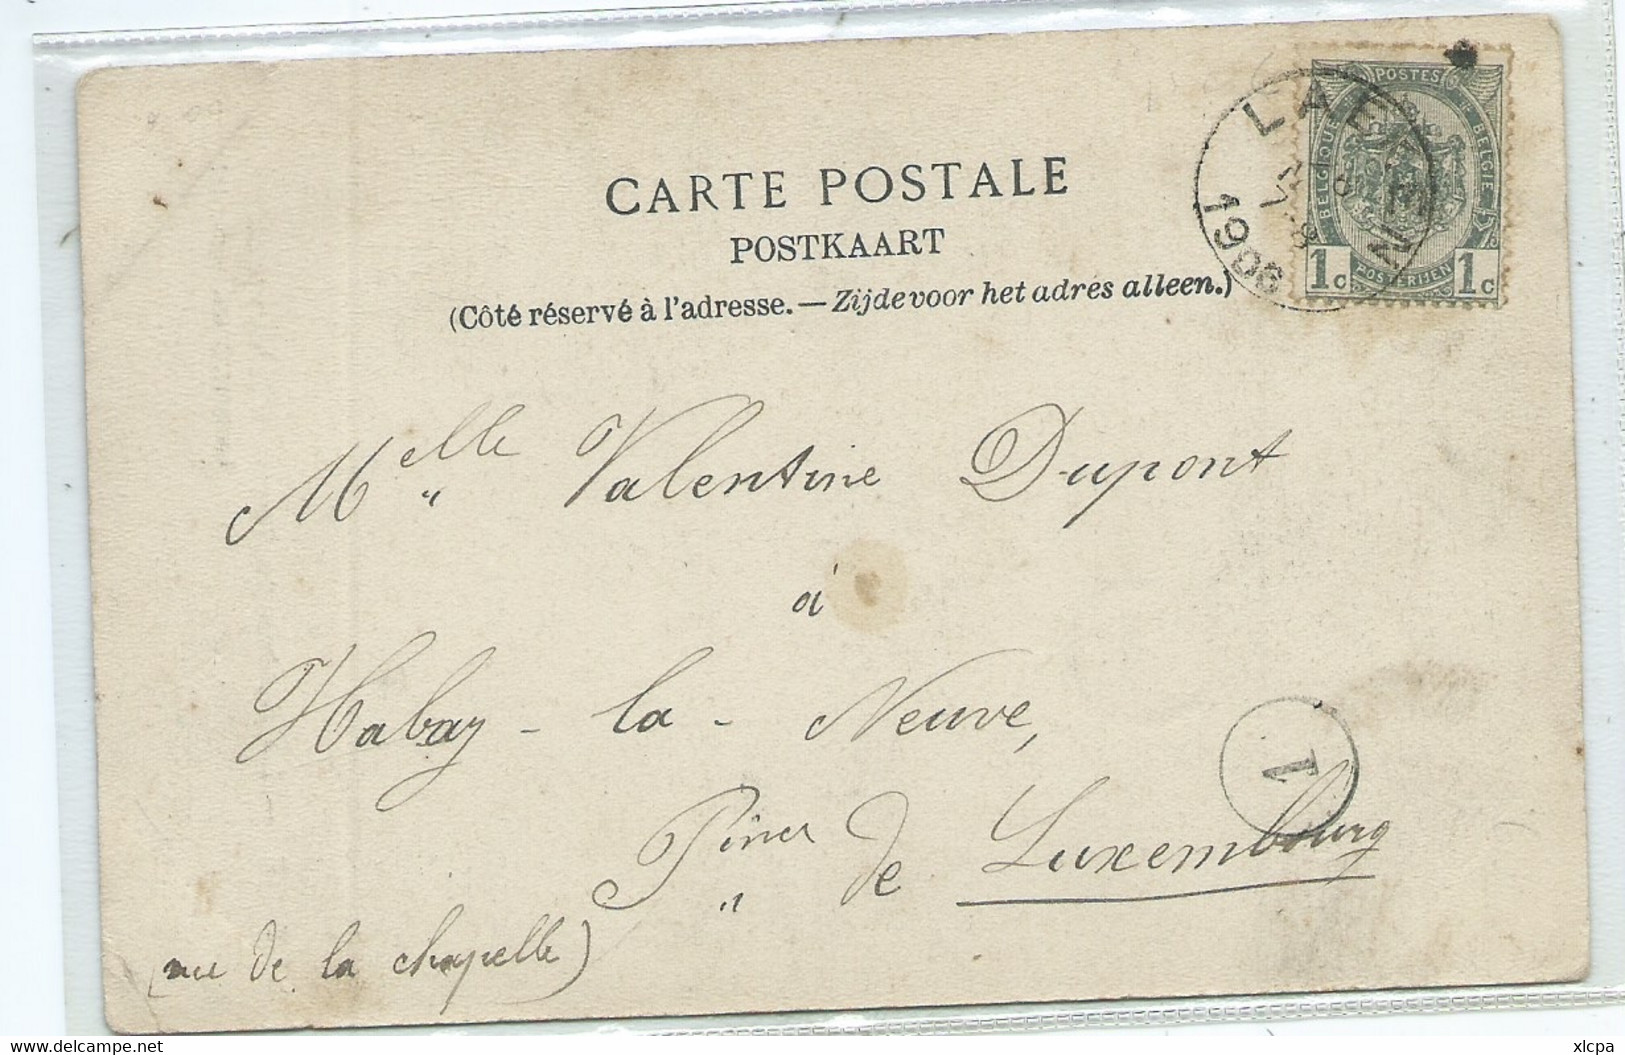 CARTE POSTALE
POSTKAART
(Côté réservé à l'adresse. — Zijde voor het adres alleen.)
POSTES
BELGIQUE
BELGIE
POSTERIJEN
1c 1c
LAEKEN
1906
Melle Valentine Dupont
à
Habay-la-Neuve,
1
de Luxembourg
(rue de la chapelle)
delcampe.net
xlcpa